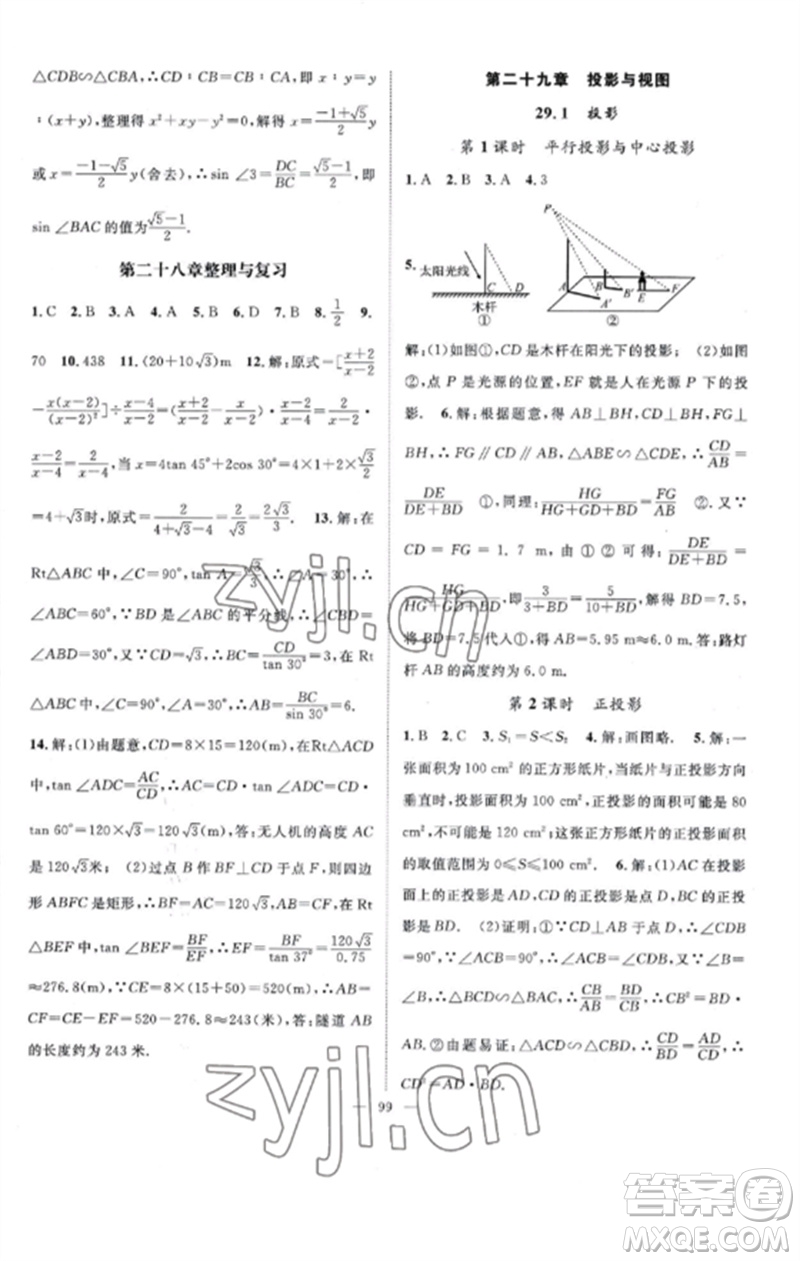 △CDB∽△CBA,∴CD∶CB=CB∶CA,即 x∶y=y
∶(x+y),整理得 x²+xy-y²=0,解得 x=(-1+√5)/2 y
或 x=(-1-√5)/2 y(舍去),∴sin ∠3=DC/BC=(√5-1)/2,即
sin∠BAC的值为(√5-1)/2.
第二十八章整理与复习
1.C 2.B 3.A 4.A 5.B 6.D 7.B 8.1/2 9.
70 10.438 11.(20+10√3)m 12.解:原式=[(x+2)/(x-2)
-x(x-2)/(x-2)²]÷(x-4)/(x-2)=((x+2)/(x-2)-x/(x-2))·(x-2)/(x-4)=2/(x-2)·
(x-2)/(x-4)=2/(x-4),当 x=4tan 45°+2cos 30°=4×1+2×√3/2
=4+√3时,原式=2/(4+√3-4)=2/√3=2√3/3. 13.解:在
Rt△ABC中,∠C=90°,tan A=√3/3,∴∠A=30°,∴
∠ABC=60°,∵BD是∠ABC的平分线,∴∠CBD=
∠ABD=30°,又∵CD=√3,∴BC=CD/tan 30°=3,在 Rt
△ABC中,∠C=90°,∠A=30°,∴AB=BC/sin 30°=6.
14.解:(1)由题意,CD=8×15=120(m),在Rt△ADC
中,tan ∠ADC=AC/CD,∴AC=CD·tan ∠ADC=CD·
tan 60°=120×√3=120√3(m),答:无人机的高度 AC
是120√3米; (2)过点 B 作BF⊥CD于点F,则四边
形 ABFC 是矩形,∴BF=AC=120√3,AB=CF,在 Rt
△BEF中,tan ∠BEF=BF/EF,∴EF=BF/tan 37°=120√3/0.75
≈276.8(m),∵CE=8×(15+50)=520(米),∴AB=
CF=CE-EF=520-276.8≈243(米),答:隧道 AB
的长度约为 243 米.
第二十九章 投影与视图
29.1 投影
第1课时 平行投影与中心投影
1.A 2.B 3.A 4.3
5. 太阳光线 C D 木杆 ① P A' B B' E F ②
解:(1)如图①,CD是木杆在阳光下的投影; (2)如图
②,点 P 是光源的位置,EF 就是人在光源 P 下的投
影. 6.解:根据题意,得 AB⊥BH,CD⊥BH,FG⊥
BH,∴FG∥CD∥AB,∴△ABE∽△CDE,∴CD/AB=
DE/(DE+BD) ①,同理:HG/(HG+GD+BD)=FG/AB ②. 又∵
CD = FG = 1. 7 m, 由 ①② 可得: DE/(DE+BD) =
HG/(HG+GD+BD),即3/(3+BD)=5/(10+BD),解得 BD=7.5,
将 BD=7.5代人①得:AB=5.95 m≈6.0 m.答:路灯
杆 AB 的高度约为 6.0 m.
第2课时 正投影
1.B 2.C 3.S₁=S<S₂ 4.解:画图略. 5.解:
一张面积为 100 cm² 的正方形纸片,当纸片与正投影方向
垂直时,其正投影的面积可能是 80
cm²,不可能是 120 cm²;这张正方形纸片的正投影的面积
的取值范围为 0≤S≤100 cm². 6.解:(1)AC在投影
面上的正投影是AD,CD的正投影是点 D,BC的正投
影是 BD. (2)证明:①∵CD⊥AB于点 D,∴∠CDB
=90°,∵∠ACB=90°,∴△BDC∽△BCA,∴CB/AB=BD/CB,∴CB²=BD·
AB.②由题易证:△BDC∽△CDA,∴CD/BD=AD/CD,∴
CD²=AD·BD.
99
zyjl.cn
zyjl.cn
答案圈
MXQE.COM